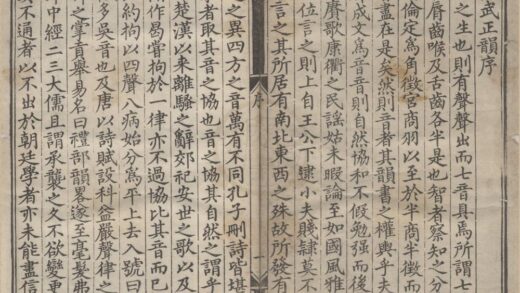 武正韻序
之生也則有聲聲出而七音具焉所謂七
脣齒喉及舌齒各半是也智者察知之分
倫定爲角徵宮商羽以至於半商半徵而
盡在是矣然則音者其韻書之權輿乎夫
成文爲音音則自然協和不假勉强而後
賡歌康衢之民謡姑未暇論至如國風雅
位言之則上自王公下逮小夫賤隸莫不
言之其所居有南北東西之殊故所發有
序
一
之異四方之音萬有不同孔子刪詩皆堪
者取其音之協也音之協其自然之謂乎
楚漢以来離騷之辭郊祀安世之歌以及
作曷嘗拘於一律亦不過協比其音而已
約拘以四聲八病始分爲平上去入號曰
多吳音也及唐以詩賦設科益嚴聲律之
之掌貢舉易名曰禮部韻畧遂至毫髮弗
中經二三大儒且謂承襲之久不欲變更
不通者以不出於朝廷學者亦未能盡信